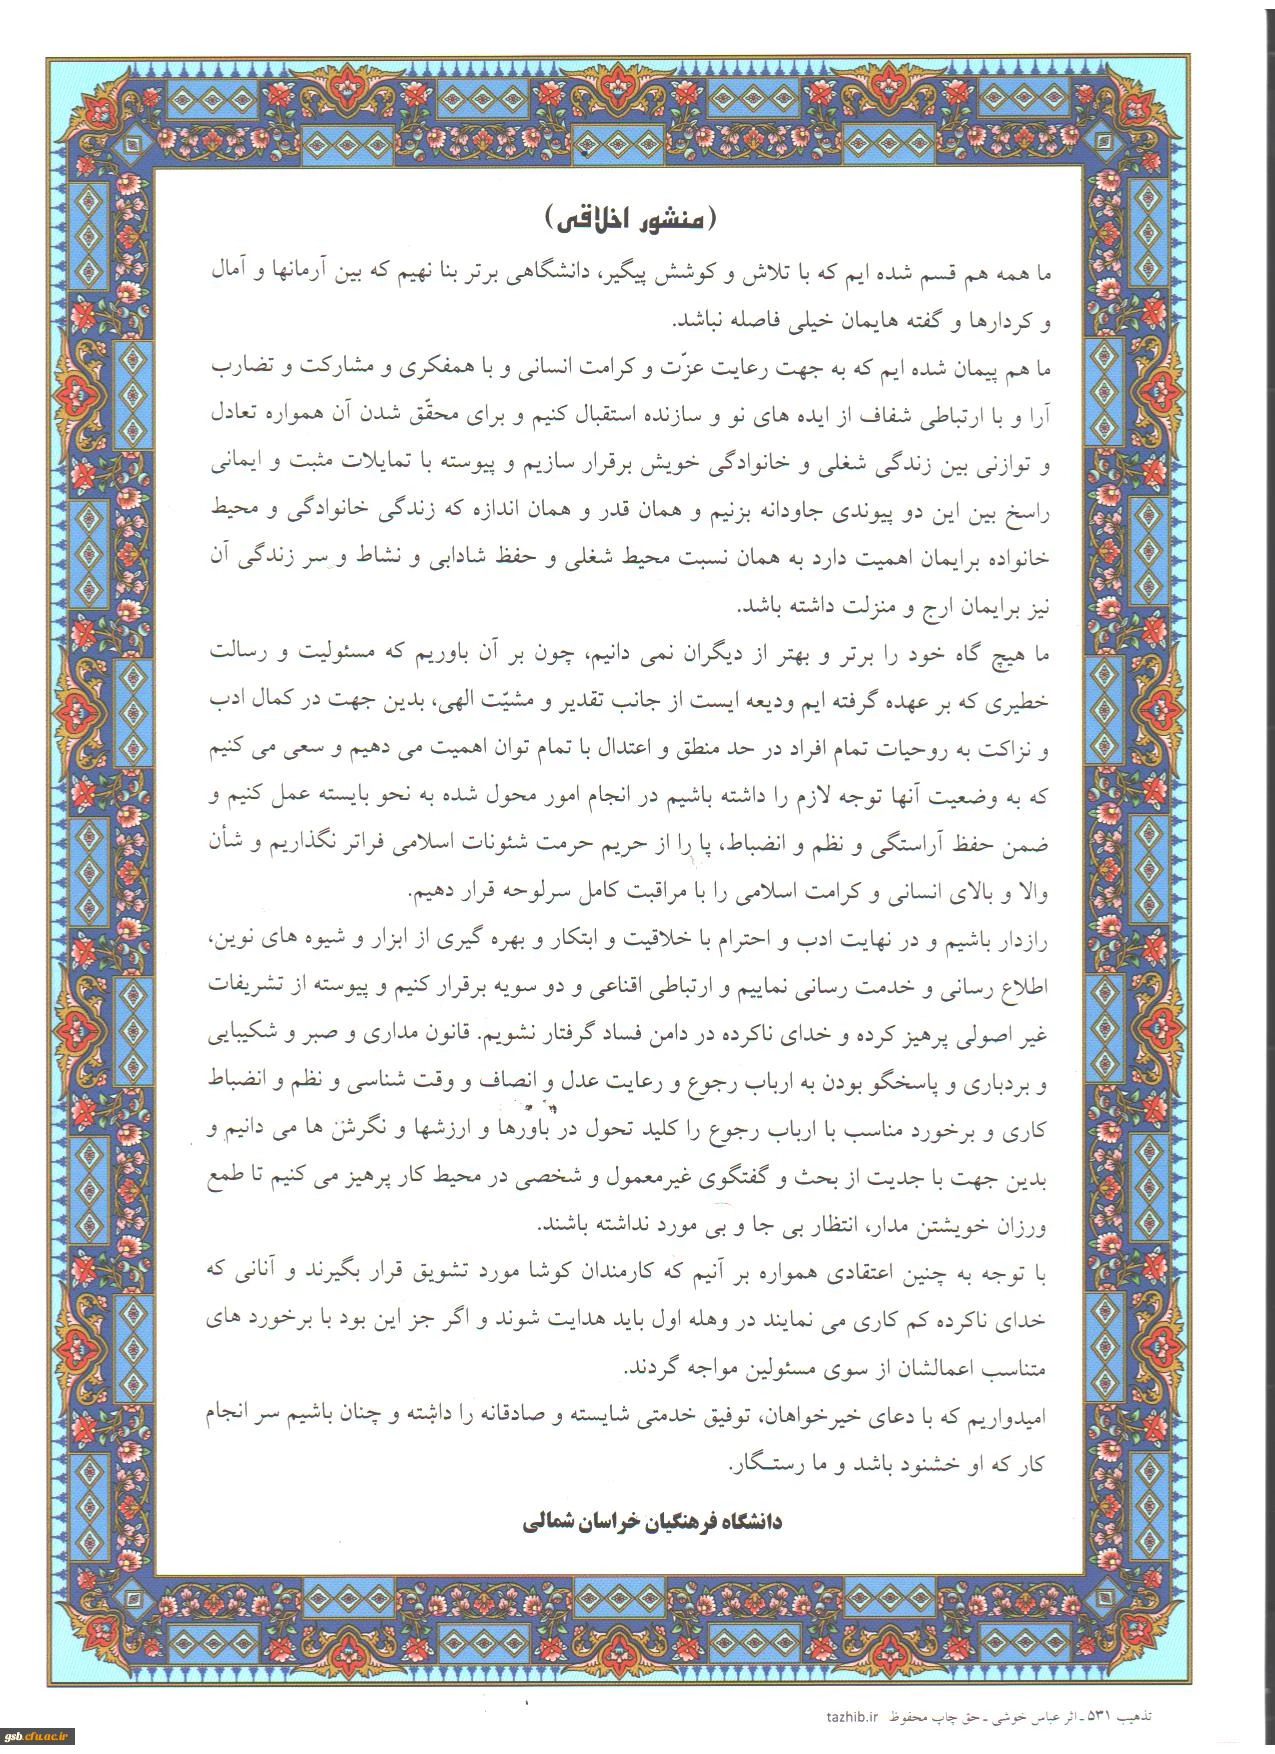 (منشور اخلاقی)
ما همه هم قسم شده ایم که با تلاش و کوشش پیگیر، دانشگاهی برتر بنا نهیم که بین آرمانها و آمال
و کردارها و گفته هایمان خیلی فاصله نباشد.
ما هم پیمان شده ایم که به جهت رعایت عزّت و کرامت انسانی و با همفکری و مشارکت و تضارب
آرا و با ارتباطی شفاف از ایده های نو و سازنده استقبال کنیم و برای محقّق شدن آن همواره تعادل
و توازنی بین زندگی شغلی و خانوادگی خویش برقرار سازیم و پیوسته با تمایلات مثبت و ایمانی
راسخ بین این دو پیوندی جاودانه بزنیم و همان قدر و همان اندازه که زندگی خانوادگی و محیط
خانواده برایمان اهمیت دارد به همان نسبت محیط شغلی و حفظ شادابی و نشاط و سر زندگی آن
نیز برایمان ارج و منزلت داشته باشد.
ما هیچ گاه خود را برتر و بهتر از دیگران نمی دانیم، چون بر آن باوریم که مسئولیت و رسالت
خطیری که بر عهده گرفته ایم ودیعه ایست از جانب تقدیر و مشیّت الهی، بدین جهت در کمال ادب
و نزاکت به روحیات تمام افراد در حد منطق و اعتدال با تمام توان اهمیت می دهیم و سعی می کنیم
که به وضعیت آنها توجه لازم را داشته باشیم در انجام امور محول شده به نحو بایسته عمل کنیم و
ضمن حفظ آراستگی و نظم و انضباط، پا را از حریم حرمت شئونات اسلامی فراتر نگذاریم و شأن
والا و بالای انسانی و کرامت اسلامی را با مراقبت کامل سرلوحه قرار دهیم.
رازدار باشیم و در نهایت ادب و احترام با خلاقیت و ابتکار و بهره گیری از ابزار و شیوه های نوین،
اطلاع رسانی و خدمت رسانی نماییم و ارتباطی اقناعی و دو سویه برقرار کنیم و پیوسته از تشریفات
غیر اصولی پرهیز کرده و خدای ناکرده در دامن فساد گرفتار نشویم. قانون مداری و صبر و شکیبایی
و بردباری و پاسخگو بودن به ارباب رجوع و رعایت عدل و انصاف و وقت شناسی و نظم و انضباط
کاری و برخورد مناسب با ارباب رجوع را کلید تحول در باورها و ارزشها و نگرش ها می دانیم و
بدین جهت با جدیت از بحث و گفتگوی غیرمعمول و شخصی در محیط کار پرهیز می کنیم تا طمع
ورزان خویشتن مدار، انتظار بی جا و بی مورد نداشته باشند.
با توجه به چنین اعتقادی همواره بر آنیم که کارمندان کوشا مورد تشویق قرار بگیرند و آنانی که
خدای ناکرده کم کاری می نمایند در وهله اول باید هدایت شوند و اگر جز این بود با برخورد های
متناسب اعمالشان از سوی مسئولین مواجه گردند.
امیدواریم که با دعای خیرخواهان، توفیق خدمتی شایسته و صادقانه را داشته و چنان باشیم سر انجام
کار که او خشنود باشد و ما رستـگار.
دانشگاه فرهنگیان خراسان شمالی
تذهیب ۵۳۱ ـ اثر عباس خوشی ـ حق چاپ محفوظ tazhib.ir
gsb.cfu.ac.ir